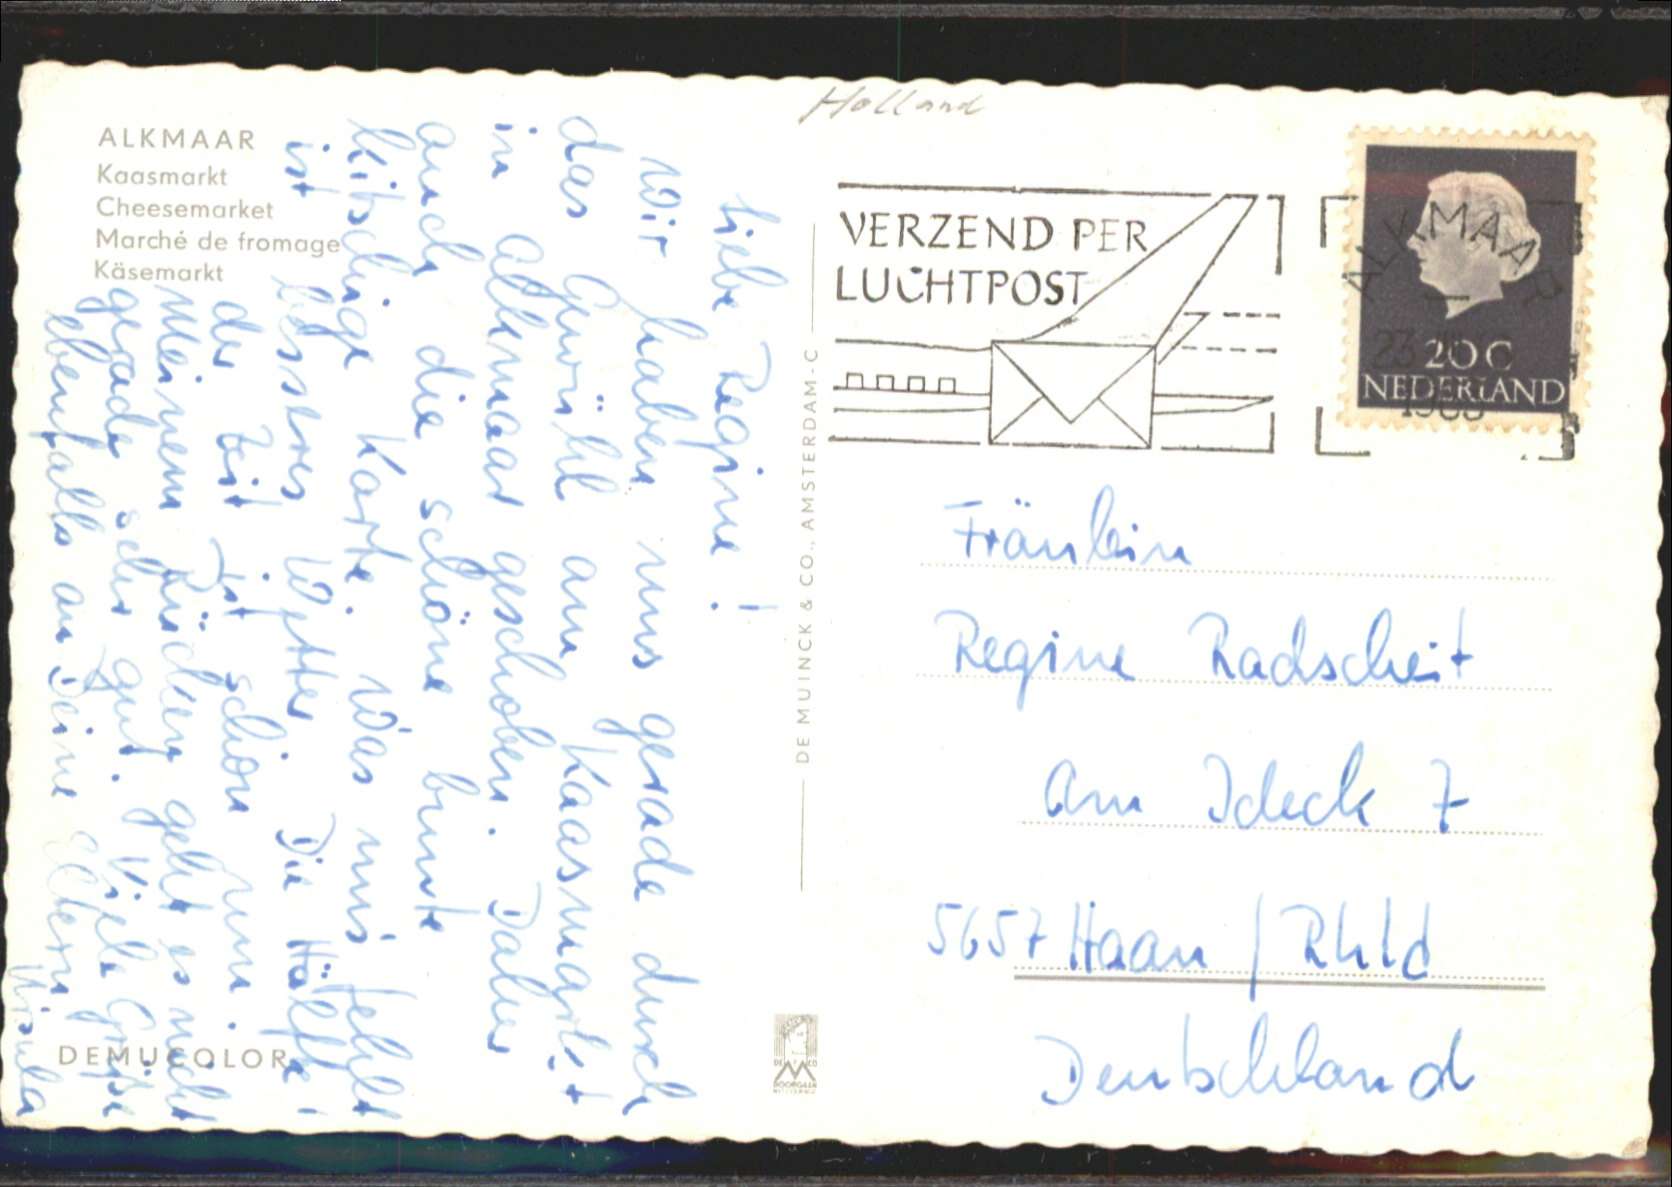 Holland
ALKMAAR
Kaasmarkt
Cheesemarket
Marché de fromage
Käsemarkt
VERZEND PER
LUCHTPOST
ALKMAAR
23
20 C
NEDERLAND
Liebe Regine!
Wir haben uns gerade durch
das Gewühl am Kaasmarkt
in Alkmaar geschoben. Daher
auch die schöne bunte
kitschige Karte. Was uns fehlt
ist besseres Wetter. Die Hälfte
der Zeit ist schon um.
Meinem Rücken geht es nicht
gerade sehr gut. Viele Grüße
ebenfalls an Deine Eltern
Ursula
DE MUINCK & CO., AMSTERDAM-C
Fräulein
Regine Radscheit
Am Ideck 7
5657 Haan / Rhld
Deutschland
DEMUCOLOR